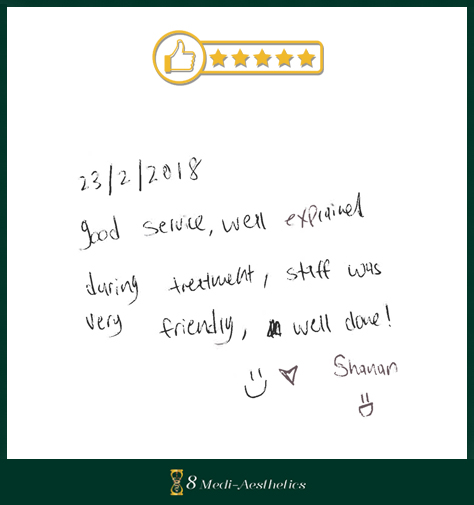 23/2/2018
good service, well explained
during treatment, staff was
very friendly, well done!
Shanan
8 Medi-Aesthetics